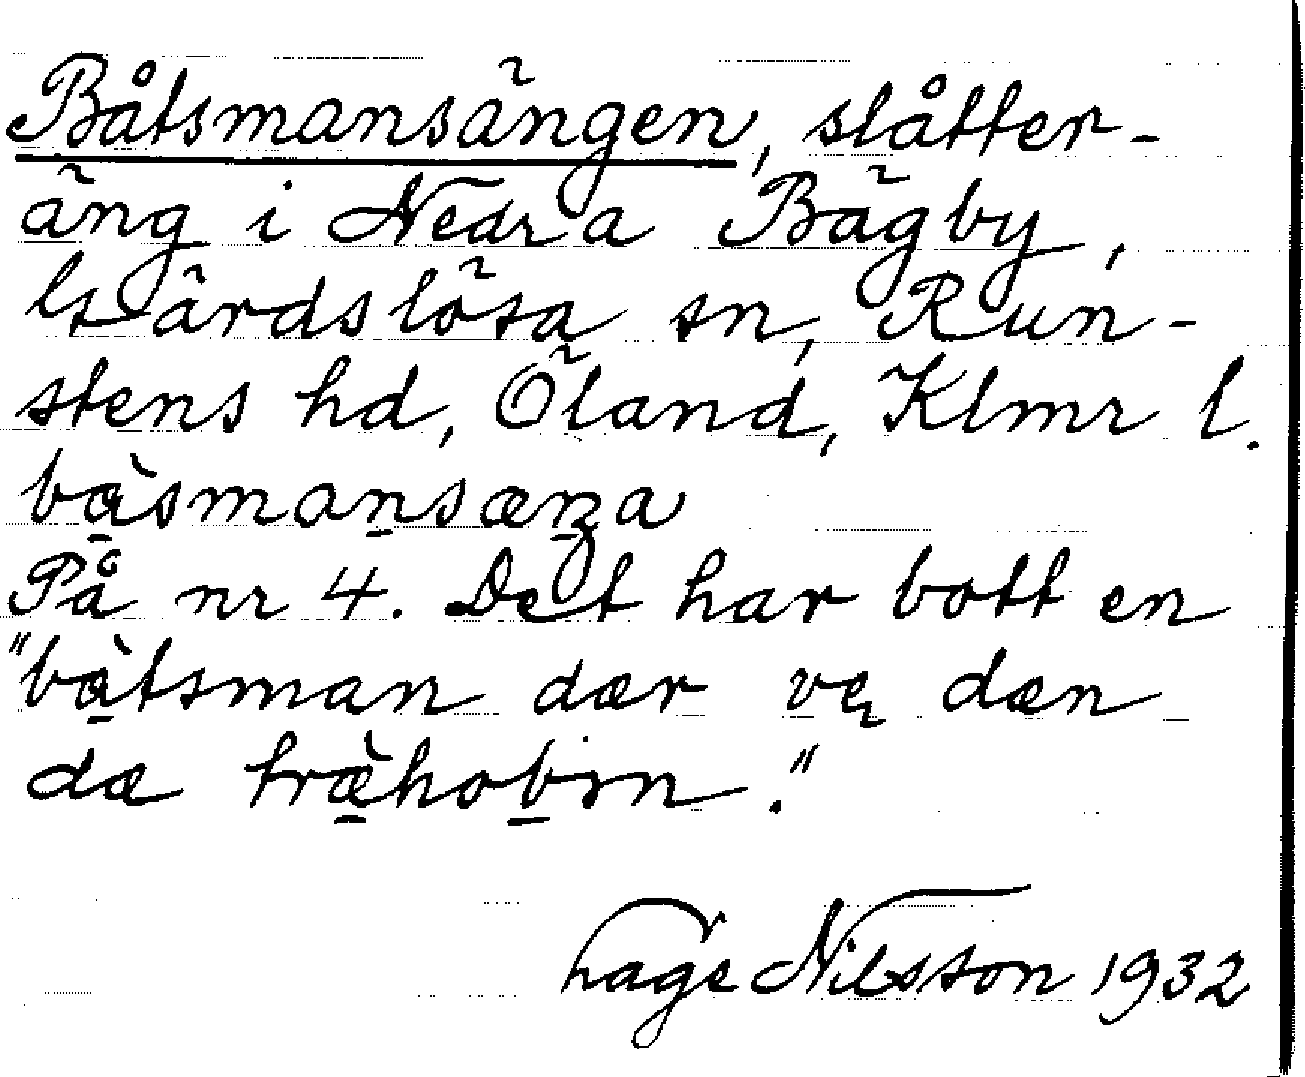 Båtsmansängen, slåtter-
äng i Nedra Bägby,
Gärdslösa sn, Run-
stens hd, Öland, Klmr l.
bàsmansæŋa
På nr 4. Det har bott en
"bàtsman dær væ dæn
dæ træ̀hobɪn."
Hage Nilsson 1932